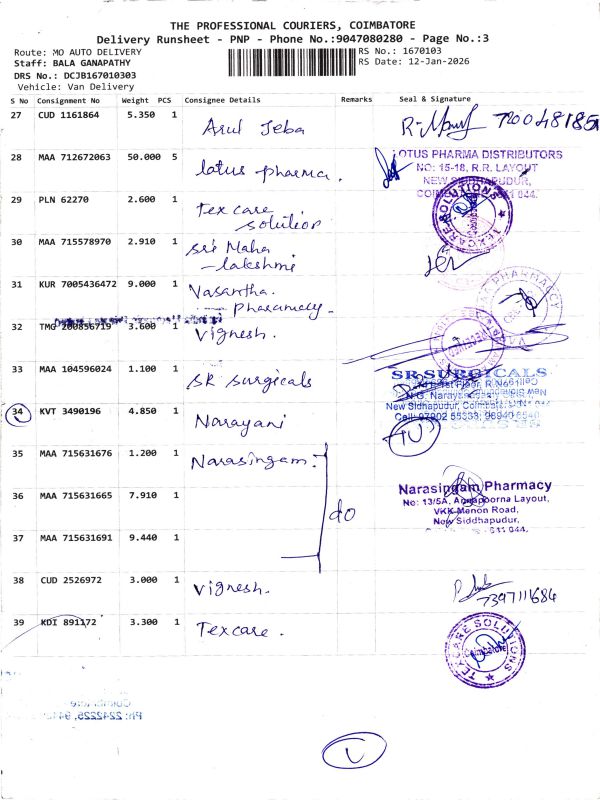 THE PROFESSIONAL COURIERS, COIMBATORE
Delivery Runsheet - PNP - Phone No.:9047080280 - Page No.:3
Route: MO AUTO DELIVERY
RS No.: 1670103
Staff: BALA GANAPATHY
RS Date: 12-Jan-2026
DRS No.: DCJB167010303
Vehicle: Van Delivery
S No Consignment No Weight PCS Consignee Details Remarks Seal & Signature
27 CUD 1161864 5.350 1 Arul Jeba
28 MAA 712672063 50.000 5 lotus pharma.
LOTUS PHARMA DISTRIBUTORS
NO: 15-18, R.R. LAYOUT
NEW SIDDHAPUDUR,
29 PLN 62270 2.600 1 Tex care
solution
TEXCARE SOLUTIONS
30 MAA 715578970 2.910 1 sri Maha
-lakshmi
31 KUR 7005436472 9.000 1 Vasantha.
- pharamacy.
PHARMACY
32 TMG 200856719 3.600 1 Vignesh.
33 MAA 104596024 1.100 1 SR surgicals
SR SURGICALS
New Sidhapudur,
34 KVT 3490196 4.850 1 Narayani
35 MAA 715631676 1.200 1 Narasingam.
36 MAA 715631665 7.910 1 do
Narasingam Pharmacy
No: 13/5A, Annapoorna Layout,
VKK Menon Road,
New Siddhapudur,
37 MAA 715631691 9.440 1
38 CUD 2526972 3.000 1 Vignesh.
7397111684
39 KDI 891172 3.300 1 Texcare.
TEXCARE SOLUTIONS
Coimbatore
Ph: 2242225,